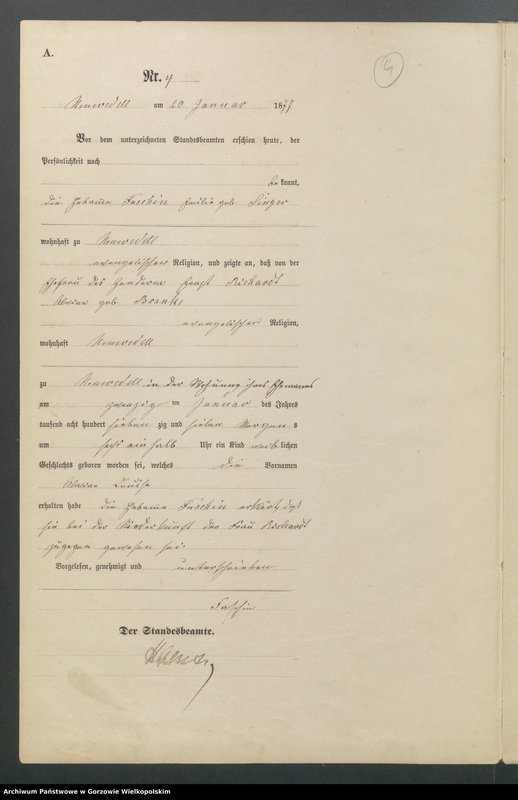 A.
4
Nr. 4
Neuwedell am 20 Januar 1877
Vor dem unterzeichneten Standesbeamten erschien heute, der
Persönlichkeit nach
be kannt,
die Hebamme Faschin Emilie geb Singer
wohnhaft zu Neuwedell
evangelischer Religion, und zeigte an, daß von der
Ehefrau des Ernst Rückardt
Alwine geb
evangelischer Religion,
wohnhaft Neuwedell
zu Neuwedell in der Wohnung ihres Ehemanns
am zwanzig ten Januar des Jahres
tausend acht hundert sieben zig und sieben Morgen s
um sechs ein halb Uhr ein Kind weib lichen
Geschlechts geboren worden sei, welches die Vornamen
Alwine Louise
erhalten habe die Hebamme Faschin erklärt, daß
sie bei der Niederkunft der Frau Rückardt
zugegen gewesen sei.
Vorgelesen, genehmigt und unterschrieben
Faschin
Der Standesbeamte.
Archiwum Państwowe w Gorzowie Wielkopolskim